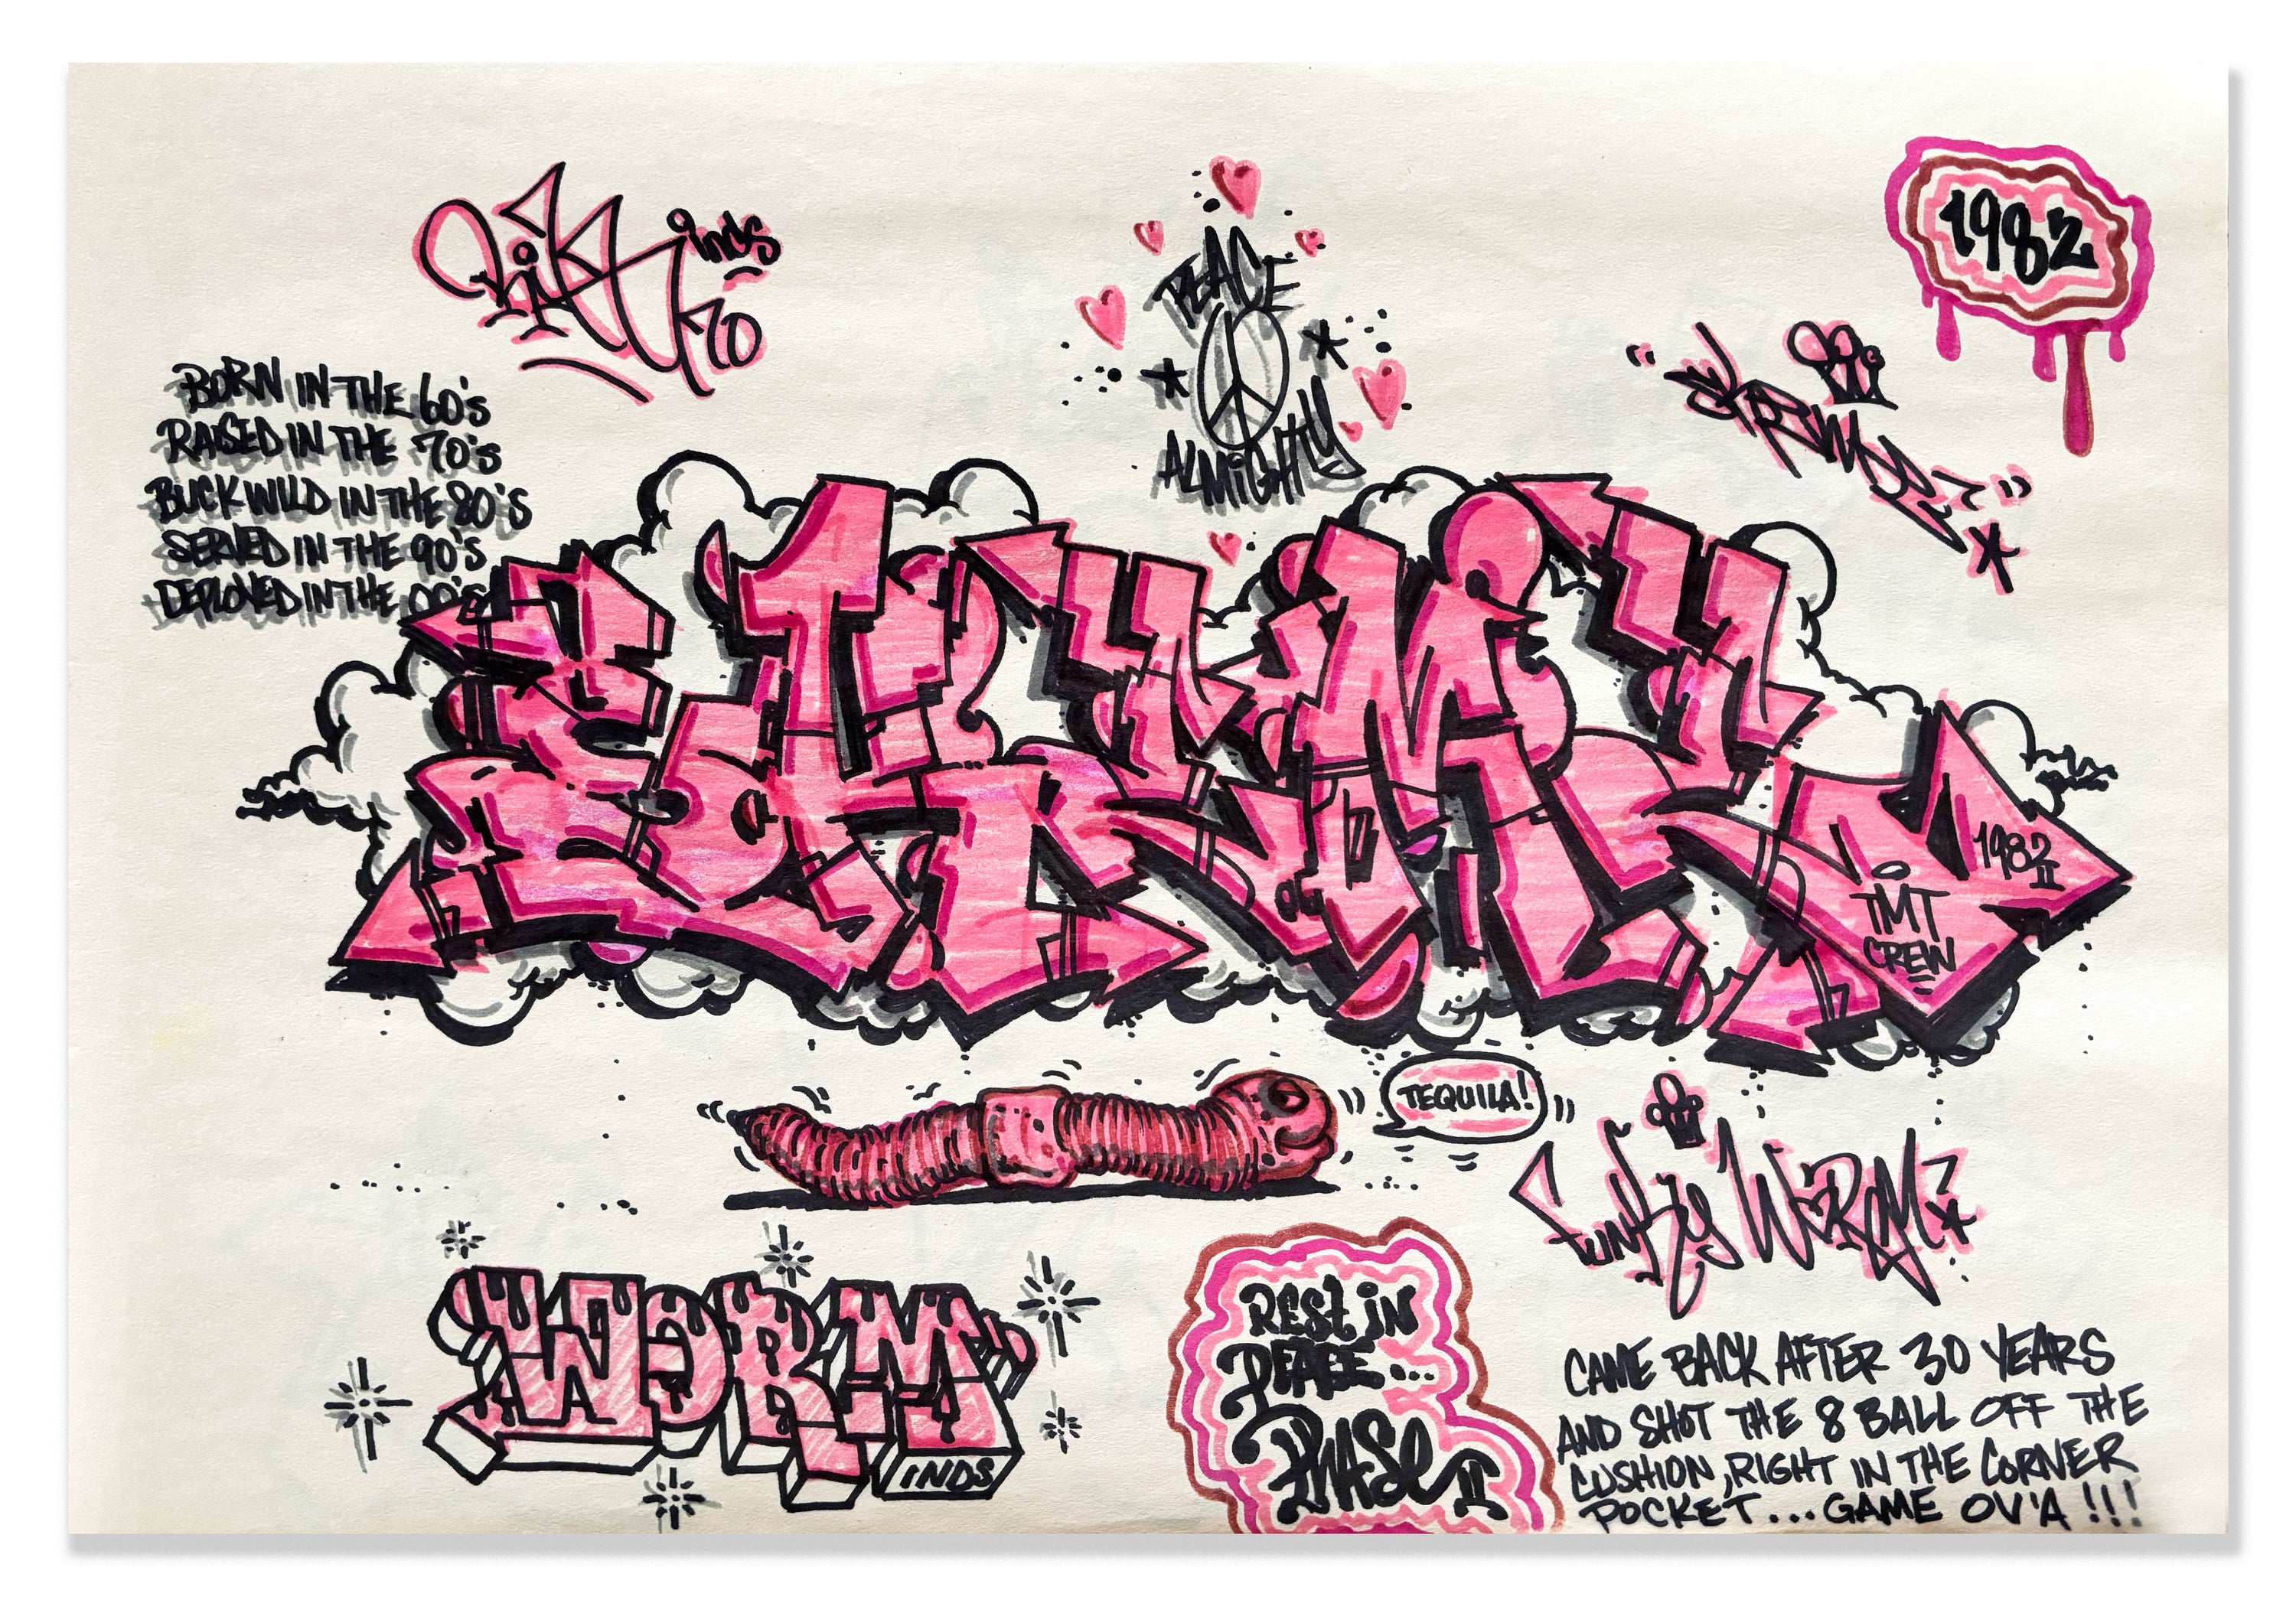 inds
1982
PEACE
ALMIGHTY
BORN IN THE 60's
RAISED IN THE 70's
BUCK WILD IN THE 80'S
SERVED IN THE 90's
DEPLOYED IN THE 00's
1982
II
TMT
CREW
TEQUILA!
FUNKY WORM
WORM
INDS
REST IN
PEACE...
PHASE II
CAME BACK AFTER 30 YEARS
AND SHOT THE 8 BALL OFF THE
CUSHION, RIGHT IN THE CORNER
POCKET...GAME OV'A !!!